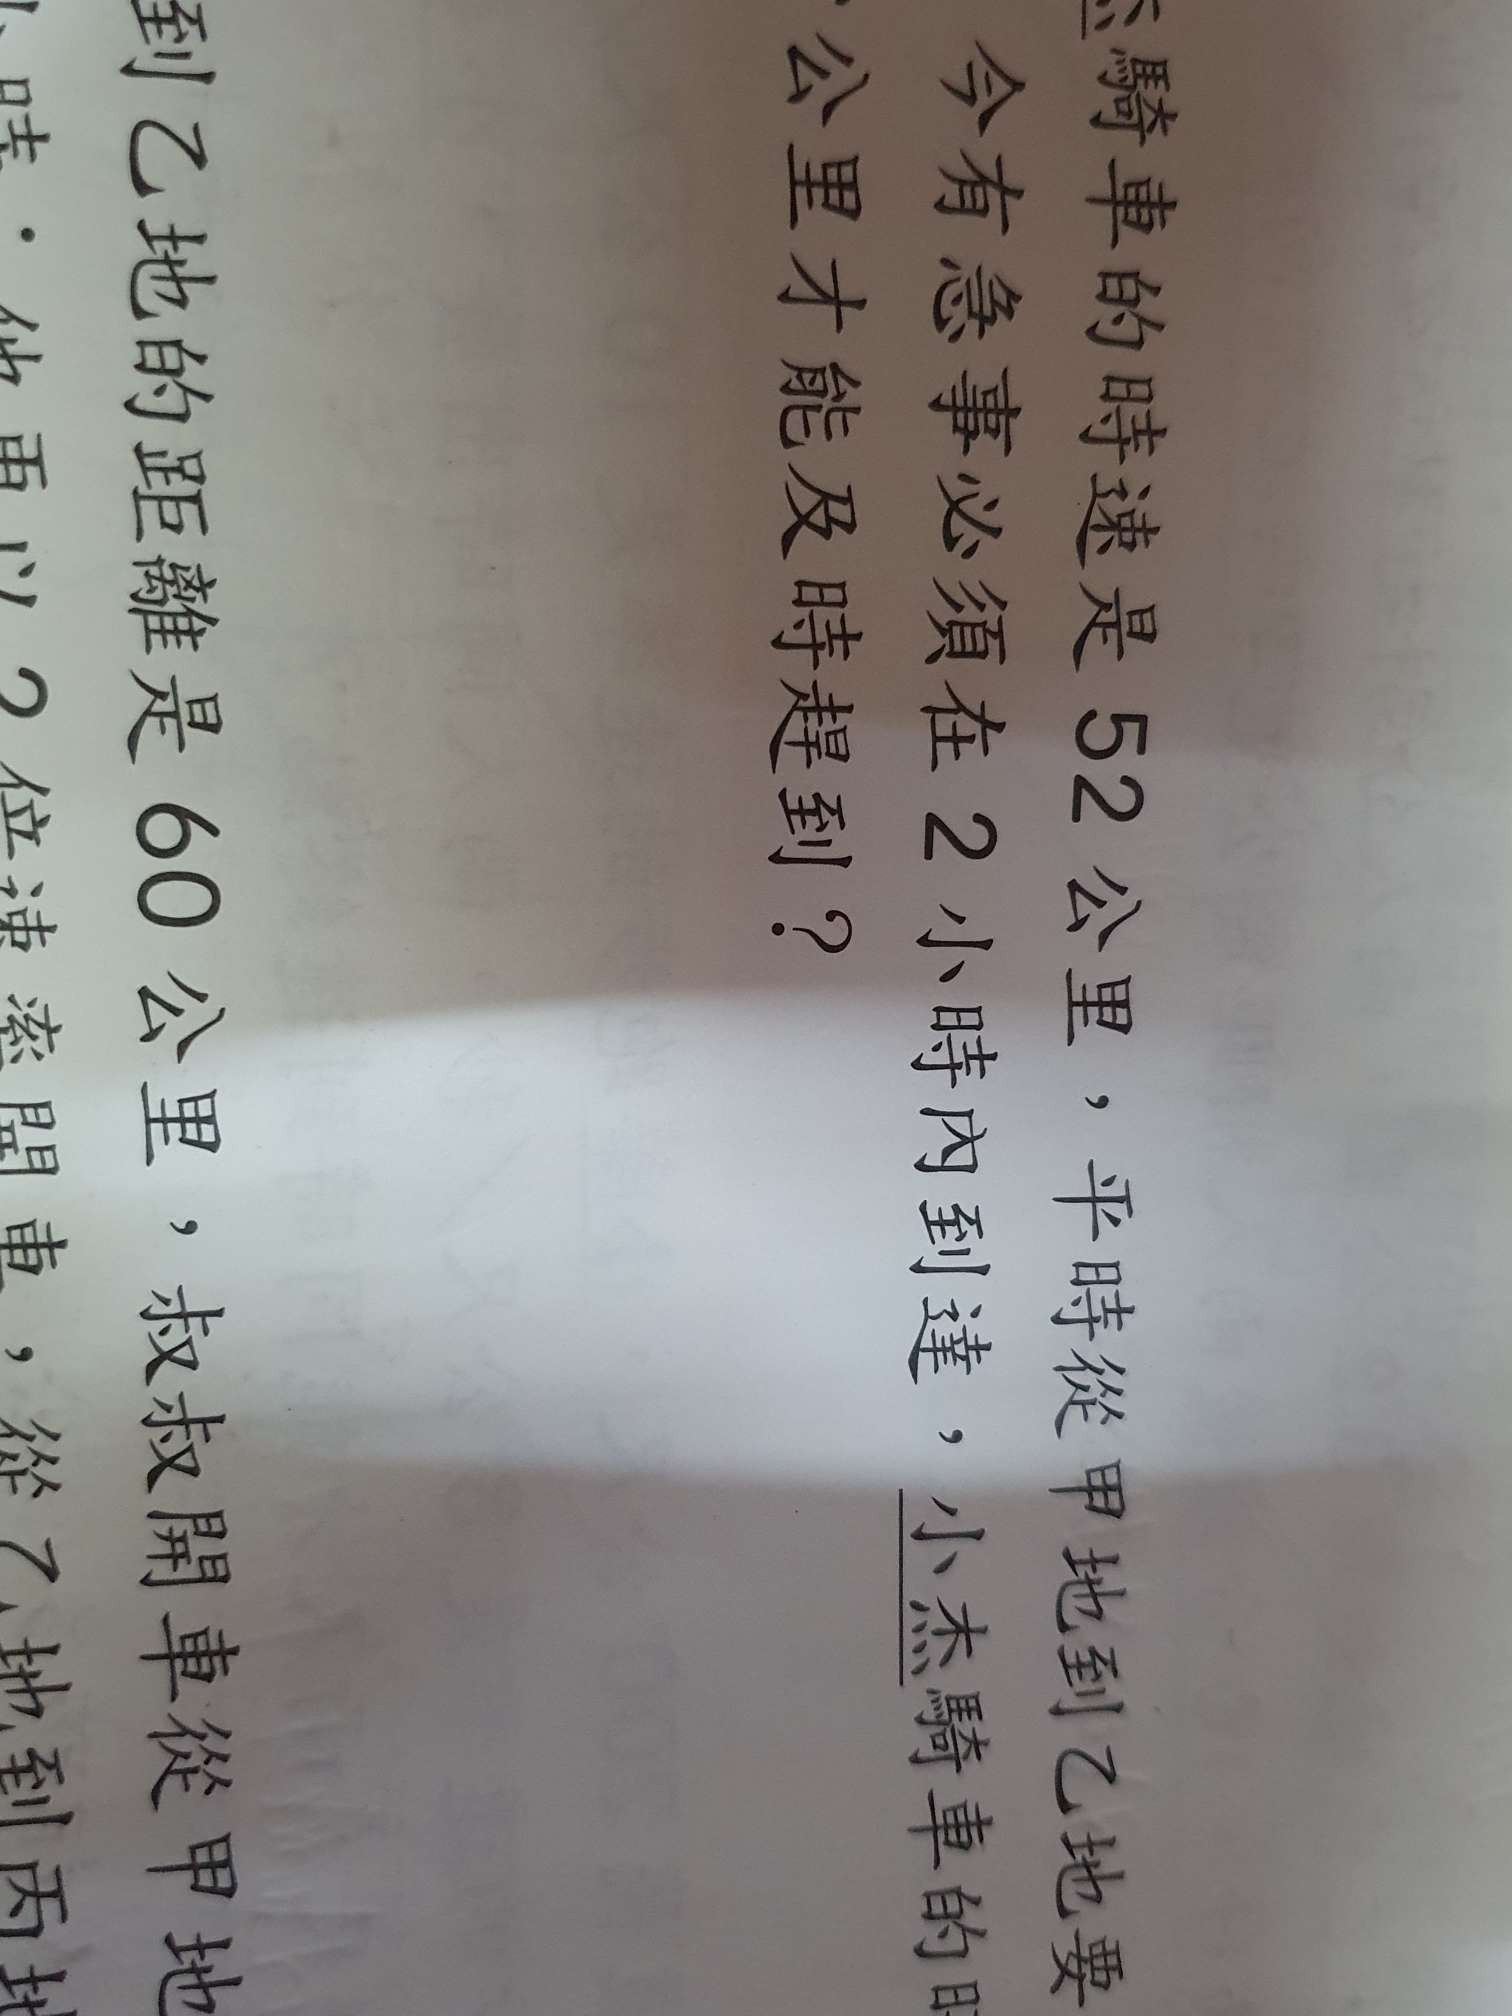 騎車的時速是 52 公里，平時從甲地到乙地要
今有急事必須在 2 小時內到達，小杰騎車的
公里才能及時趕到？
到乙地的距離是 60 公里，叔叔開車從甲地
時．他再以 2 倍速率開車，從乙地到丙地